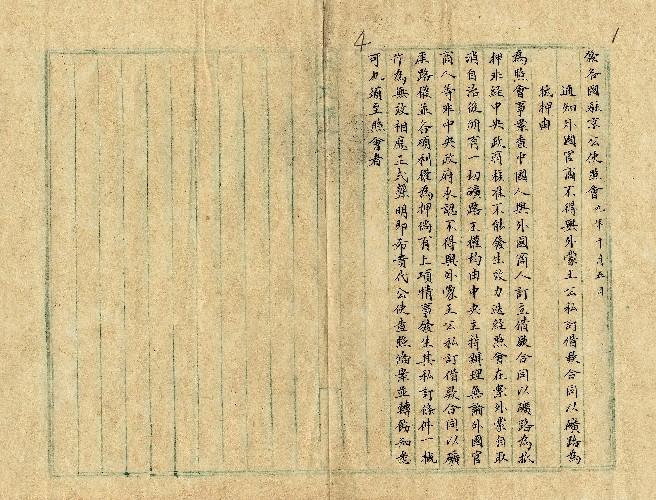 1
4
發各國駐京公使照會 九年十月五日
通知外國官商不得與外蒙王公私訂借款合同以礦路為
抵押由
為照會事案查中國人與外國商人訂立借款合同以礦路為抵
押非經中央政府核准不能發生效力迭經照會在案外蒙自取
消自治後所有一切礦路主權均由中央主持辦理無論外國官
商人等非中央政府承認不得與外蒙王公私訂借款合同以礦
產路權並各項利權為押倘有上項情事發生其私訂條件一概
作為無效相應正式聲明即希貴代公使查照備案並轉飭知悉
可也須至照會者